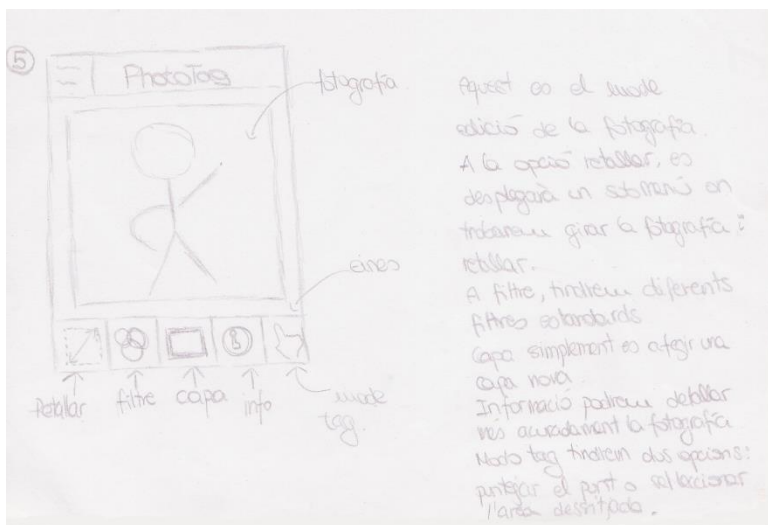 5
PhotoTag
fotografia
eines
Retallar
filtre
capa
info
mode
tag.
Aquest es el mode
edició de la fotografia.
A la opció retallar, es
desplegarà un submenú on
trobarem girar la fotografia i
retallar.
A filtre, tindrem diferents
filtres estandards
Capa simplement es afegir una
capa nova.
Informació podrem detallar
més acuradament la fotografia
Modo tag tindrem dos opcions:
puntejar el punt o sel·leccionar
l'area desitjada.